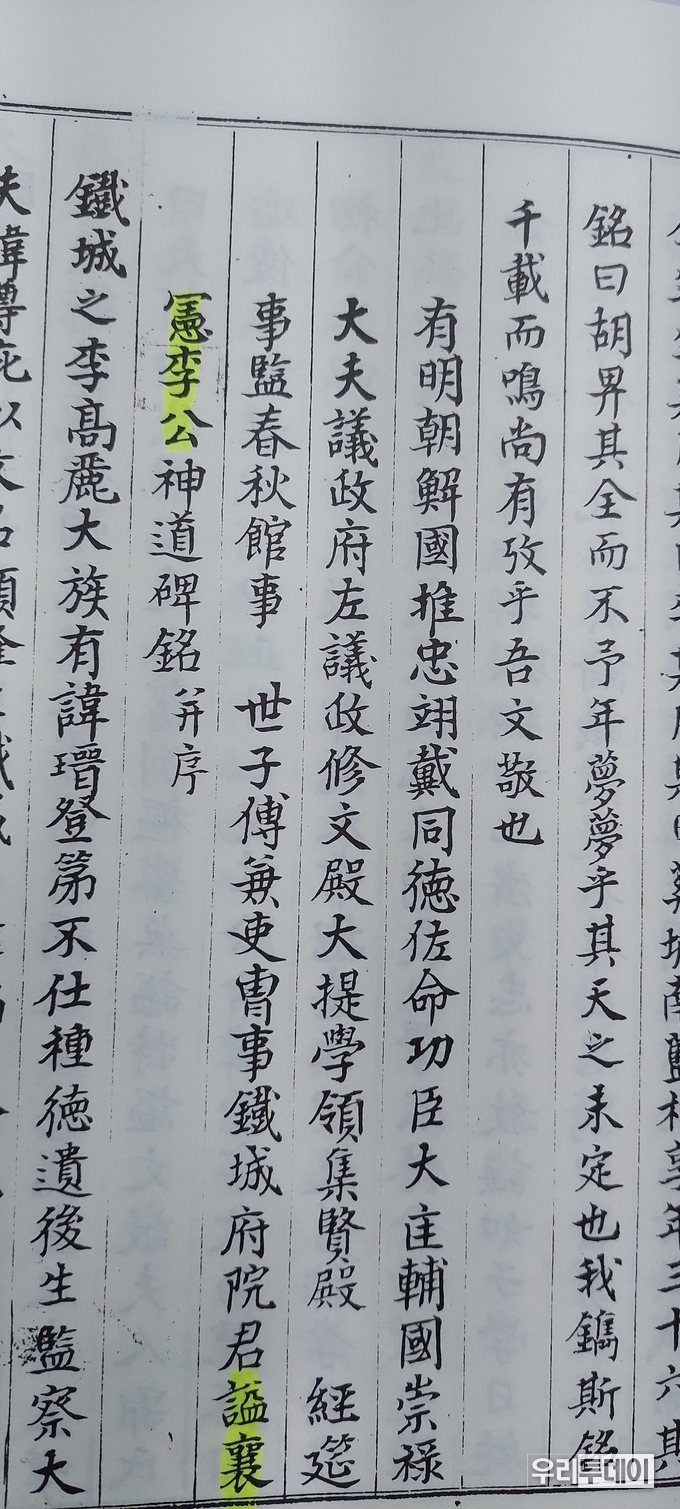 年三十六其
銘曰胡畀其全而不予年夢夢乎其天之未定也我鐫斯銘
千載而鳴尚有攷乎吾文敬也
有明朝鮮國推忠翊戴同德佐命功臣大匡輔國崇祿
大夫議政府左議政修文殿大提學領集賢殿 經筵
事監春秋館事 世子傅兼吏曹事鐵城府院君謚襄
憲李公神道碑銘 并序
鐵城之李高麗大族有諱瑨登第不仕種德遺後生監察大
夫諱尊庇以文名
우리투데이